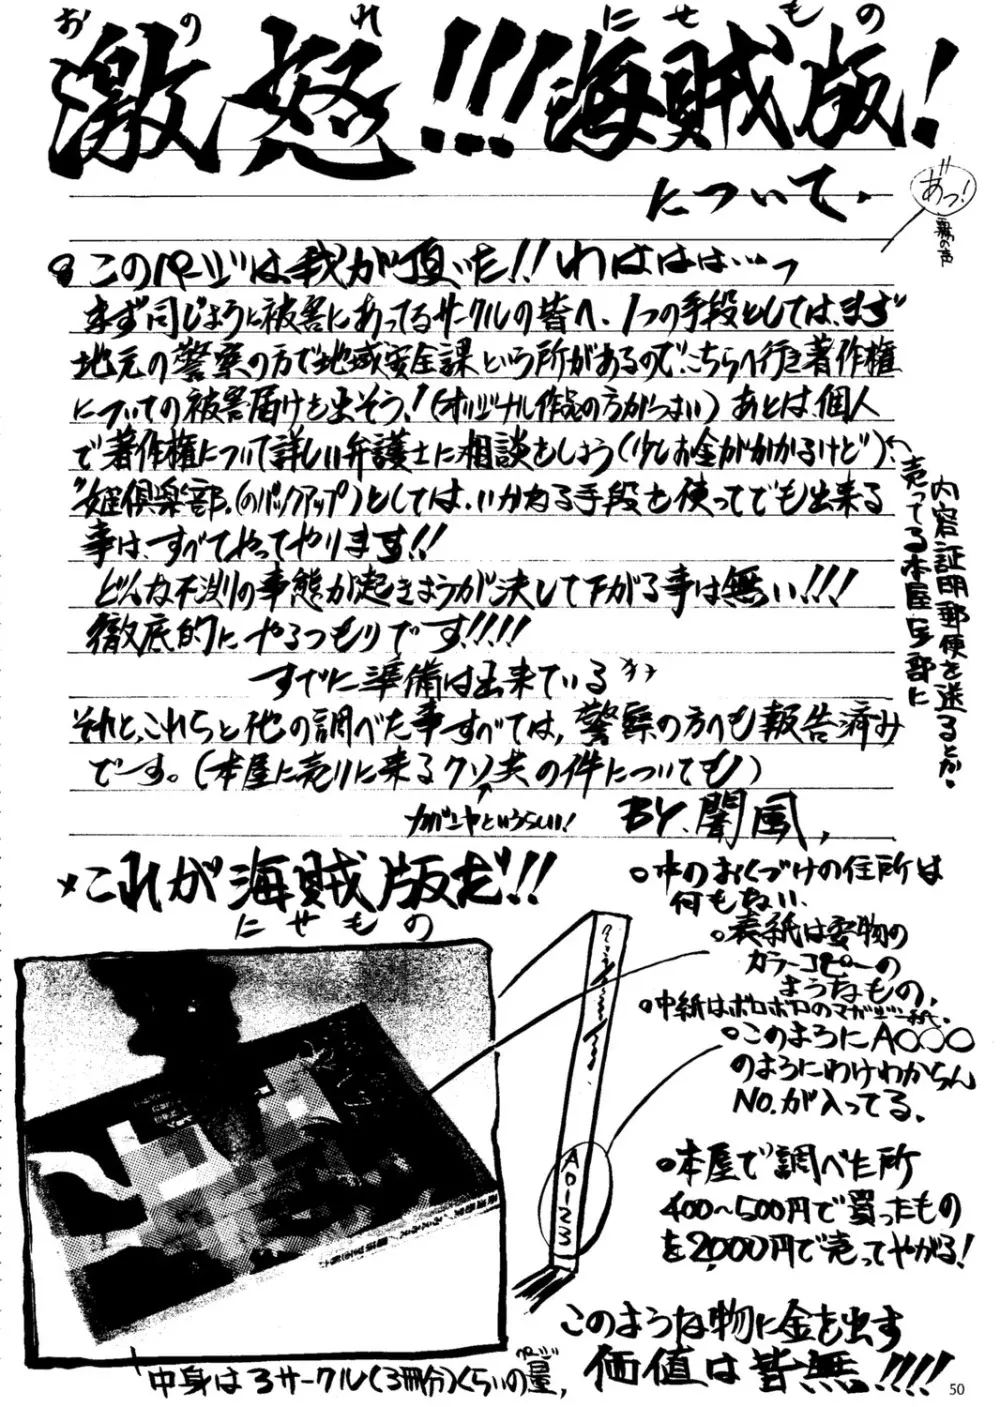 おのれ
激怒!!!
にせもの
海賊版!
について.
あっ!
霧の声
このページは我が頂いた!!わははは…っ
まず同じように被害にあってるサークルの皆へ、1つの手段としては、まず
地元の警察の方で地域安全課という所があるので、こちらへ行き著作権
についての被害届けを出そう!(オリジナル作品の方がつよい)あとは、個人
で著作権について詳しい弁護士に相談をしよう(少しお金がかかるけど)
内容証明郵便を送るとか.
売ってる本屋全部に
姫倶楽部.(のバックアップ)としては、いかなる手段を使ってでも出来る
事は、すべてやってやります!!
どんな不測の事態が起きようが決して下がる事は無い!!!
徹底的にやるつもりです!!!!
すでに準備は出来ている
それと、これらと他の調べた事すべては、警察の方へも報告済み
でーす。(本屋に売りに来るクソ共の件についても)
カバンヤというらしい!
BY.闇風,
これが海賊版だ!!
にせもの
中のおくづけの住所は
何もない.
表紙は安物の
カラーコピーの
ようなもの.
中紙はボロボロのマガジン
このようにA○○○
のようにわけわからん
No.が入ってる.
A0123
本屋で調べた所
400~500円で買ったもの
を2,000円で売ってやがる!
このような物に金を出す
価値は皆無!!!!
中身は3サークル(3冊分)くらいの量,
ページ
50